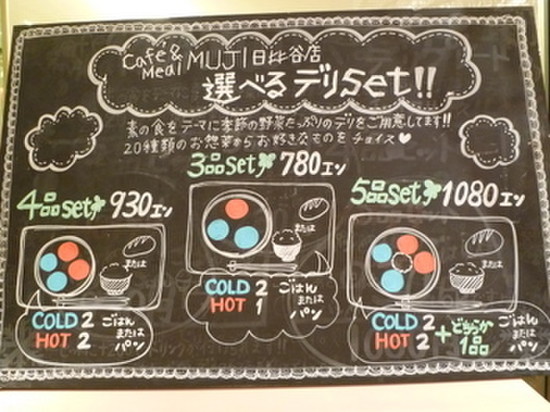 Café & Meal MUJI 日比谷店
選べるデリset!!
素の食をテーマに季節の野菜たっぷりのデリをご用意してます!!
20種類のお惣菜からお好きなものをチョイス♥
3品set 780エン
4品set 930エン
5品set 1080エン
または
COLD 2
HOT 2
ごはん
または
パン
または
COLD 2
HOT 1
ごはん
または
パン
または
COLD 2
HOT 2
+どちらか
1品
ごはん
または
パン